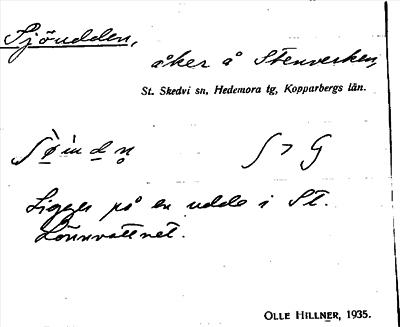 Sjöudden,
åker å Stenverken,
St. Skedvi sn, Hedemora tg, Kopparbergs län.
ʃ > ʒ
Ligger på en udde i St.
Lönnvattnet.
OLLE HILLNER, 1935.